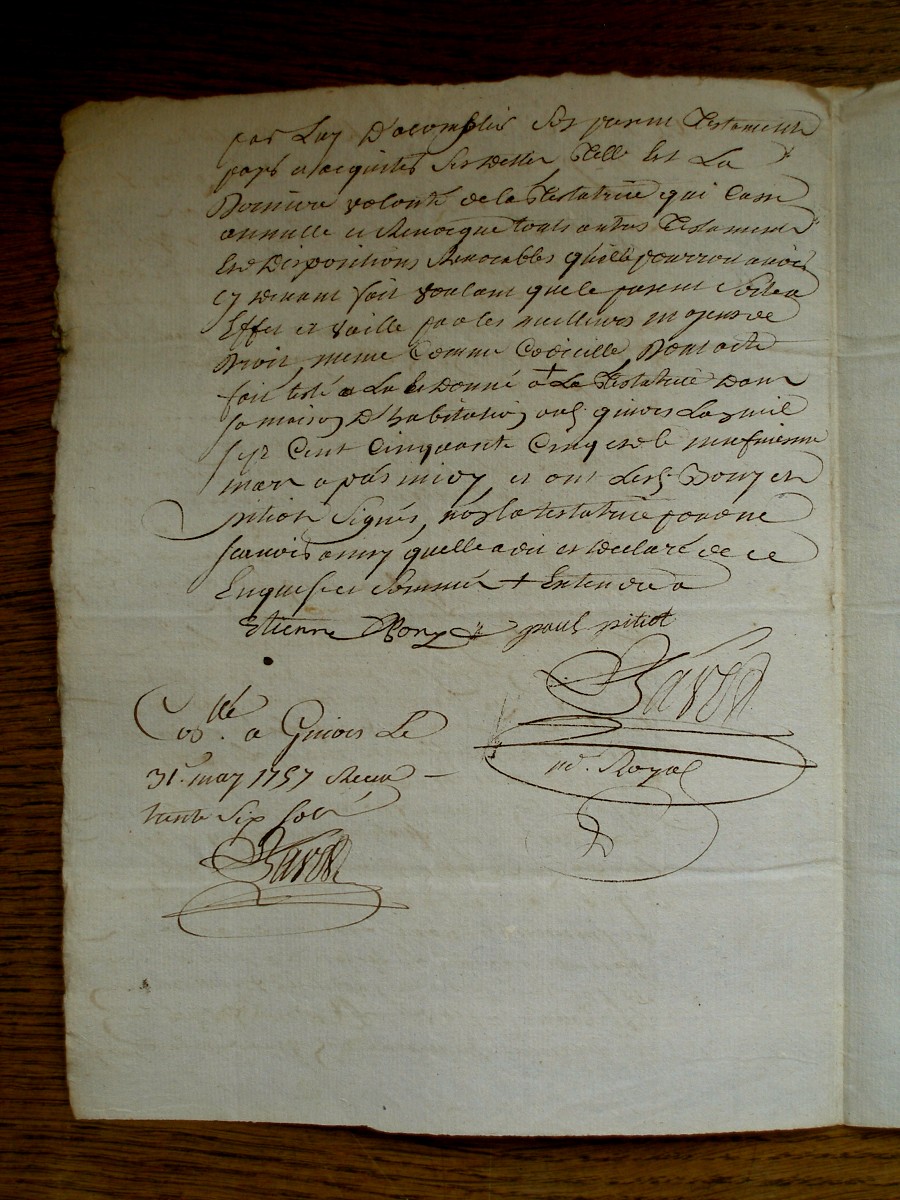 par Luy D'acomplir Ses presents Testament
payé et acquités Ses dettes Telle Est La
Derniere volonté de la Testatrice qui Casse
annulle et Revocque touts autres Testaments
Et Dispositions Revocables qu'elle pourroit avoir
cy devant fait voulant que le present Sorte a
Effet et vaille par les meilleurs moyens de
Droit, meme Comme Codicille, Dont acte
fait leu a La Testatrice Dans
sa maison D'habitation aud. givors La mil
sept Cent Cinquante Cinq et le neufvieme
mars apres midy, et ont Lesd. Bony et
pitiot Signés, non la testatrice pour ne
scavoir ainsy quelle a dit et declaré de ce
Enquise et Sommée + Entendre a
Etienne Bony paul pitiot
Bavod
no. Royal
Collé. a Givors Le
31. may 1757 Receu
trente Six sols
Bavod